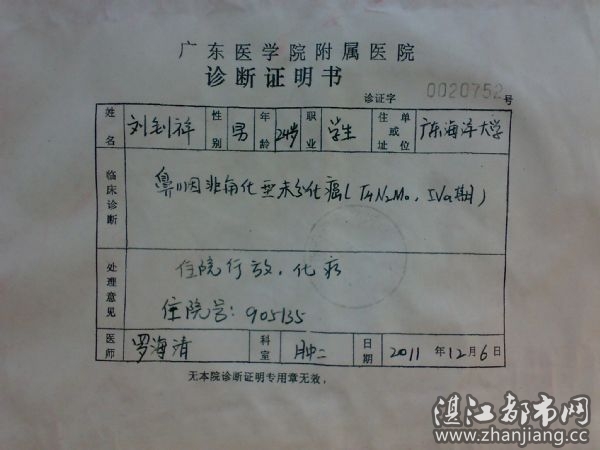 广东医学院附属医院
诊断证明书
诊证字 0020752 号
姓名 刘钊祥 性别 男 年龄 24岁 职业 学生 单位或住址 广东海洋大学
临床诊断 鼻咽非角化型未分化癌(T4N2M0，IVa期)
处理意见 住院行放、化疗
住院号：905135
医师 罗海清 科室 肿二 日期 2011 年 12 月 6 日
无本院诊断证明专用章无效，
湛江都市网
www.zhanjiang.cc